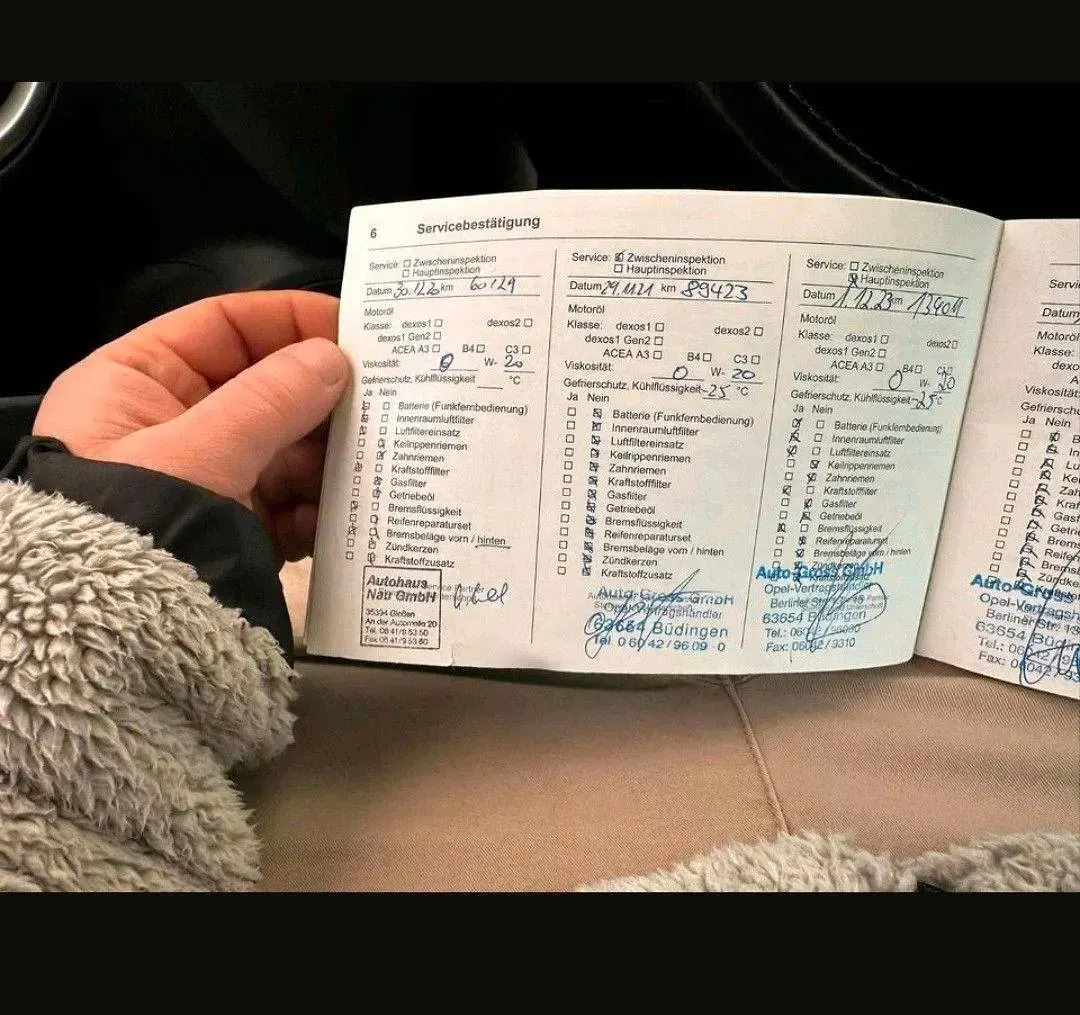 6 Servicebestätigung
Service: Zwischeninspektion
Hauptinspektion
Datum 30.12.20 km 60129
Motoröl
Klasse: dexos1 dexos2
dexos1 Gen2
ACEA A3 B4 C3
Viskosität: 0 W- 20
Gefrierschutz, Kühlflüssigkeit °C
Ja Nein
Batterie (Funkfernbedienung)
Innenraumluftfilter
Luftfiltereinsatz
Keilrippenriemen
Zahnriemen
Kraftstofffilter
Gasfilter
Getriebeöl
Bremsflüssigkeit
Reifenreparaturset
Bremsbeläge vorn / hinten
Zündkerzen
Kraftstoffzusatz
Autohaus
Nau GmbH
35394 Gießen
An der Automeile 20
Tel. 06 41/9 53 50
Service: Zwischeninspektion
Hauptinspektion
Datum 29.11.21 km 89423
Motoröl
Klasse: dexos1 dexos2
dexos1 Gen2
ACEA A3 B4 C3
Viskosität: 0 W- 20
Gefrierschutz, Kühlflüssigkeit -25 °C
Ja Nein
Batterie (Funkfernbedienung)
Innenraumluftfilter
Luftfiltereinsatz
Keilrippenriemen
Zahnriemen
Kraftstofffilter
Gasfilter
Getriebeöl
Bremsflüssigkeit
Reifenreparaturset
Bremsbeläge vorn / hinten
Zündkerzen
Kraftstoffzusatz
Auto-Gross GmbH
Opel-Vertragshändler
63654 Büdingen
Tel. 0 60 42 / 96 09 0
Service: Zwischeninspektion
Hauptinspektion
Datum 1.12.23 km
Motoröl
Klasse: dexos1 dexos2
dexos1 Gen2
ACEA A3 B4
Viskosität: 0 W- 20
Gefrierschutz, Kühlflüssigkeit -25 °C
Ja Nein
Batterie (Funkfernbedienung)
Innenraumluftfilter
Luftfiltereinsatz
Keilrippenriemen
Zahnriemen
Kraftstofffilter
Gasfilter
Getriebeöl
Bremsflüssigkeit
Reifenreparaturset
Bremsbeläge vorn / hinten
Auto-Gross GmbH
Berliner
63654 Büdingen
Tel.:
Fax: 9310
Motoröl
Klasse:
Ja Nein